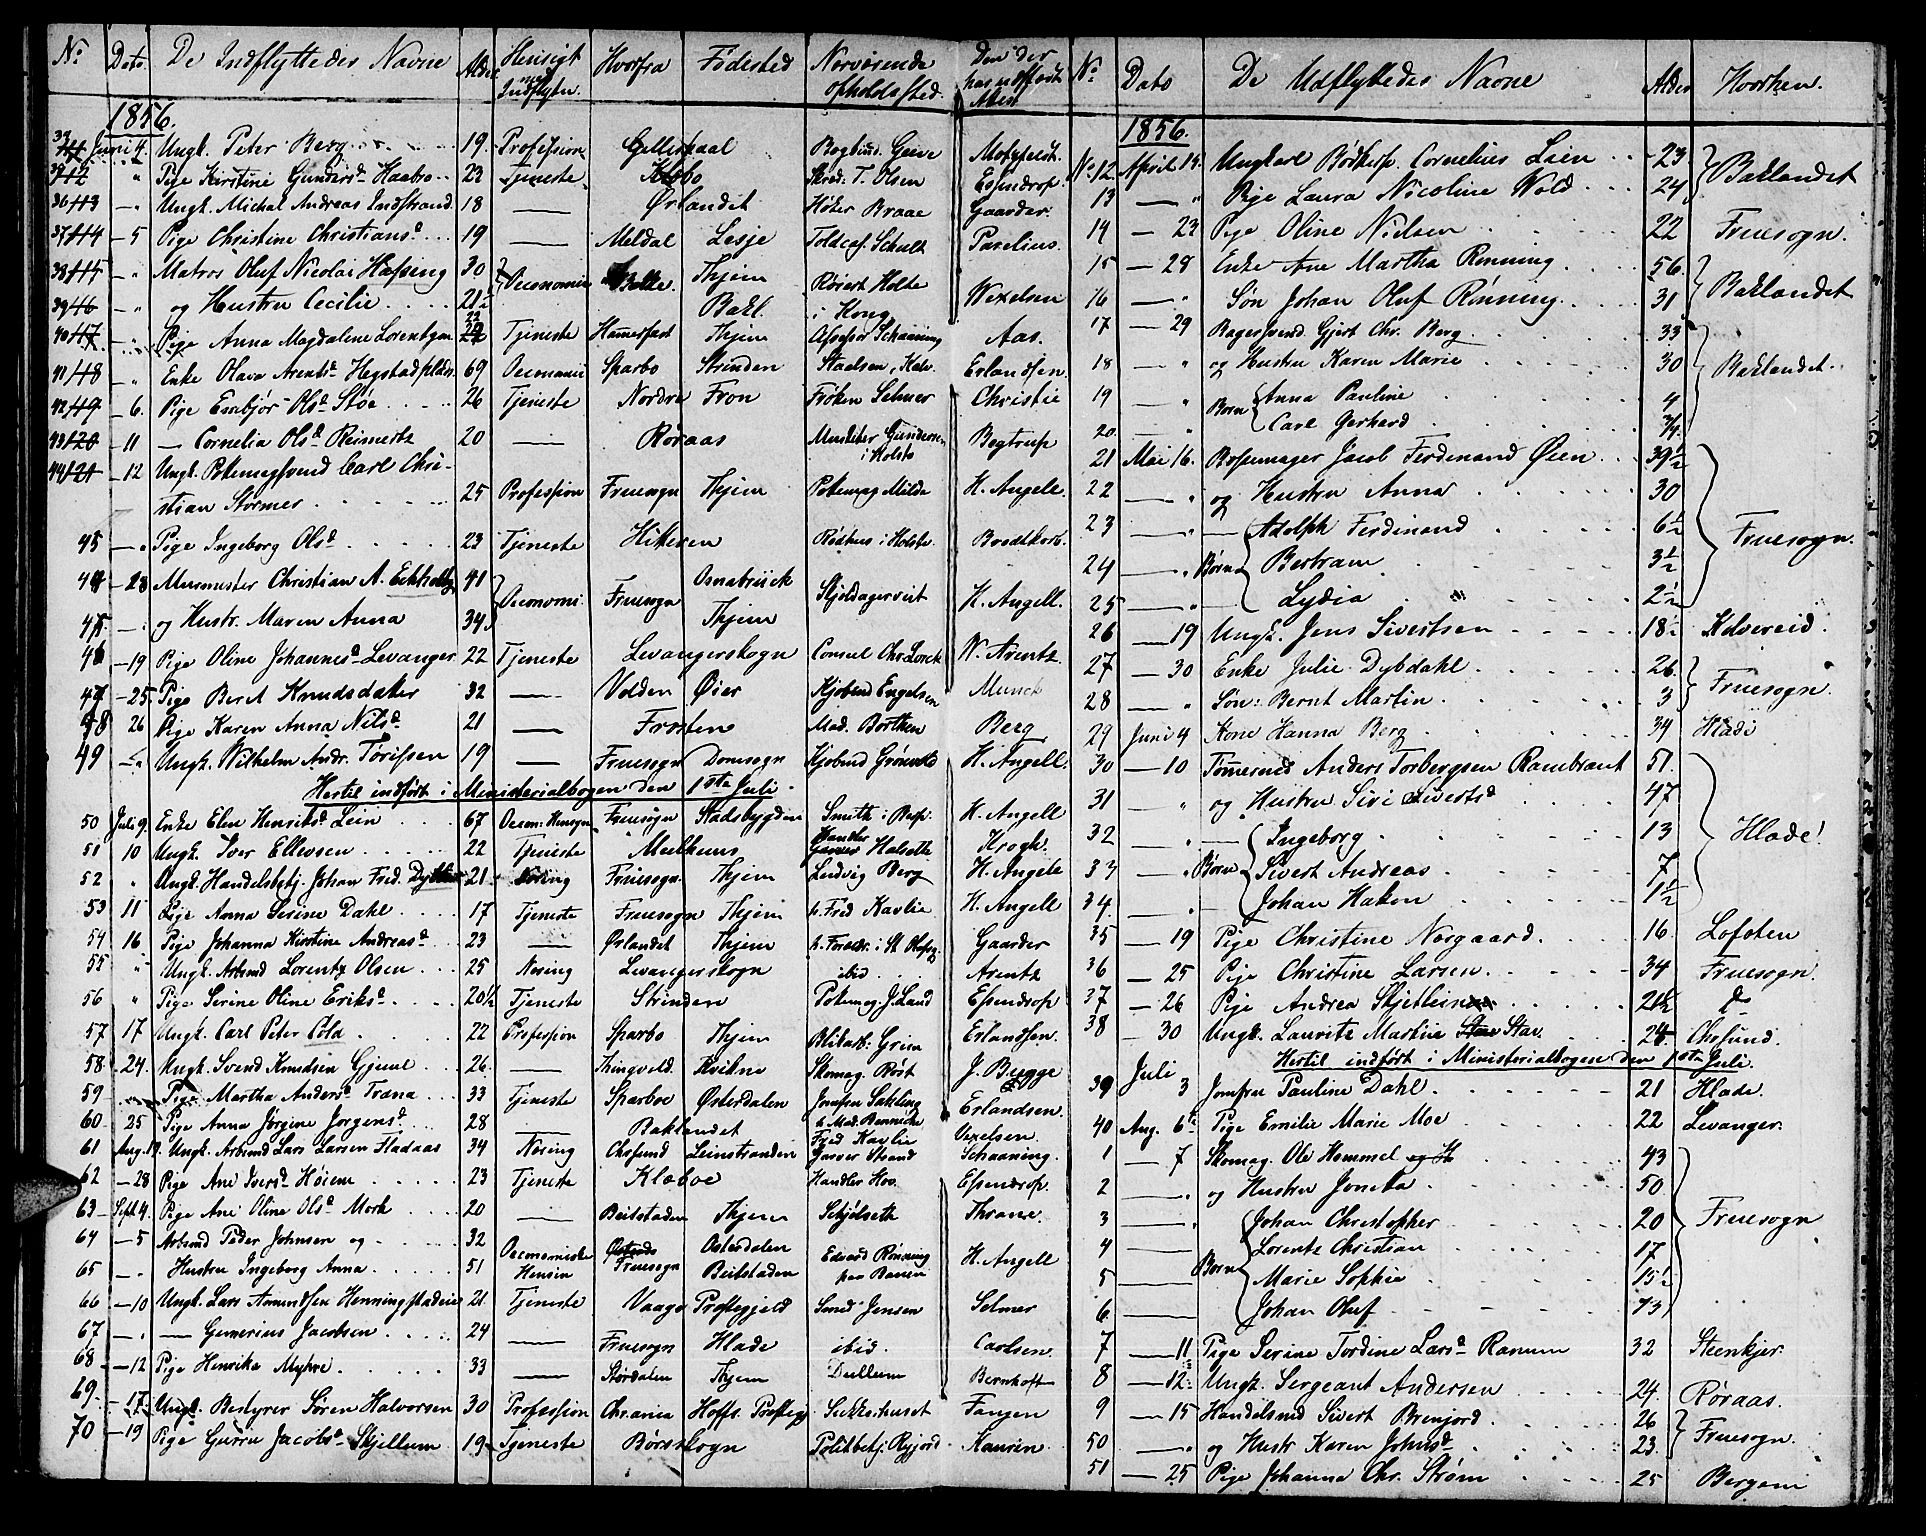 No Dato. De Indflyttedes Navne Alder Hensigt med Indflytn. Hvorfra Fødested Nærværende Opholdssted.
1856.
Juni 4. Ungk. Peter Berg 19. Profession
" Pige Kirstine Gunders. Haabo 23 Tjeneste Klæbo Skræd: T. Olsen Essendrop.
36 " Ungk. Michal Andreas Indstrand 18 — Ørlandet Høker Braae Gaarder.
37 — 5 Pige Christine Christiansd. 19 — Meldal Lesje Toldcas. Schult Parelius.
38 " Matros Oluf Nicolai Hassing 30 Oeconomie Thjem Røiert Holte
39 — " og Hustru Cecilie 21½ Bakl. Wexelsen
40 " Pige Anna Magdalene Lorentzen 22 Tjeneste Hamerfest Thjem Assessor Schaaning Aas.
41 " Enke Olava Arentsd. 69 Oeconomi Sparbo Strinden Erlandsen.
42 — 6. Pige Embjør Olsd. Støe 26 Tjeneste Nordre Fron Frøken Selmer Christie
43 — 11 — Cornelia Olsd. Reimertz 20 — Røraas Musketer Gundersen i Kolsto Bogtrup
44 — 12 Ungk. Pottemagsvend Carl Chri-
stian Stormer 25 Profession Fruesogn Thjem Potemag Milde H. Angell.
45 — " Pige Ingeborg Olsd. 23 Tjeneste Hitteren Brodtkorb.
44 — 23 Murmester Christian A. Eckholdt 41 Oeconomi. Fruesogn Osnabrück Skjoldagerveit H. Angell.
45 — . og Hustr. Maren Anna 34 Thjem
46 — 19 Pige Oline Johannesd. Levanger 22 Tjeneste Levangerskogn Consul Chr. Lorck N. Arentz
47 — 25. Pige Beret Knudsdatter 32 — Volden Øier Kjøbmd Engelsen Munch
48 26 Pige Karen Anna Nilsd. 21 — Frosten Mad. Borthen Berg
49 — " Ungk. Wilhelm Andr. Torissen 19 — Fruesogn Domsogn Kjøbmd Grønvold H. Angell.
Hertil indført i Ministerialbogen den 1ste Juli.
50 Juli 9. Enke Elen Henriksd. Lein 67 Oecon: Hensyn. Fruesogn Stadsbygden H. Angell
51 10 Ungk. Iver Ellevsen 22 Tjeneste Meelhuus Handler Halseth Krogh.
52 " Ungk. Handelsbetj. Johan Fred. 21 Næring Fruesogn. Thjem Ludvig Berg H. Angell
53 11 Pige Anna Serine Dahl 17 Tjeneste Fruesogn Thjem h. Fred Kavlie H. Angell
54 16 Pige Johanna Kirstine Andreasd. 23 — Ørlandet Thjem Gaarder
55 " Ungk. Arbmd Lorentz Olsen 25 Næring Levangerskogn ibid Arentz
56 " Pige Serine Oline Eriksd. 20½ Tjeneste Strinden Potemag J. Lund Essendrop
57 17 Ungk. Carl Peter Cold 22 Profession Sparbo Thjem Grim Erlandsen.
58 24. Ungk. Svend Knudsen Gjeml 26. — Tingvold Kvikne Skomag. Røst J. Bugge
59 — Pige Martha Andersd. Træna 33 Tjeneste Sparboe Østerdalen Jomfru Erlandsen.
60 25 Pige Anna Jørgine Jørgensd. 28 — Baklandet Wexelsen.
61 Aug. 19. Ungk. Arbmd Lars Larsen Fladaas 34 Næring Chrsund Leinstranden Garver Strand Schaaning.
62 — 28 Pige Ane Iversd. Høiem 23 Tjeneste Klæboe Handler Hov. Essendrop.
63 Sept 4. Pige Ane Oline Olsd. Mork 20 — Beitstaden Thjem Skjølseth Thrane.
64 — 5 Arbmd Peder Johnsen og 32 Oeconomiske Hensin Fruesogn Østerdalen Edvard Rønning H. Angell
65 — . Hustru Ingeborg Anna 51 Beitstaden
66 — 10 Ungk. Lars Amundsen Henningstadeie 21 Tjeneste Vaage Præstegjeld Smed Jensen Selmer
67 — . — Gunerius Jacobsen 24 — Fruesogn Hlade ibid. Carlsen.
68 — 12 Pige Henrika Myhre 33 — Størdalen Thjem Dullum Bernhoft
69. — 17. Ungk. Bestyrer Søren Halvorsen 30 Profession Chr.ania Hofft. Præsteg. Sukkerhuset Fangen
70 — 19 Pige Gurru Jacobsd. Skjellum 19 Tjeneste Børsskogn Politbetj. Ryjord Kaurin.
No Dato De Udflyttedes Navne Alder Hvorhen.
1856.
No 12 April 19. Ungkarl Bødkersv. Cornelius Lien 23 Baklandet
13 — " Pige Laura Nicoline Wold 24
14 — 23 Pige Oline Nielsen 22 Fruesogn.
15 — 28 Enke Ane Martha Rønning 56. Baklandet
16 — " Søn Johan Oluf Rønning 31
17 — 29 Bagersvend Gjert Chr. Berg 33 Baklandet.
18 " og Hustru Karen Marie 30
19 " Børn Anna Pauline 4
20. " Carl Gerhard 3/4
21 Mai 16. Børsemager Jacob Ferdinand Øien 39½ Fruesogn.
22 — " og Hustru Anna 30
23 — " Adolph Ferdinand 6½
24 — " Børn Bertram 3½
25 — " Lydia 2½
26 — 19 Ungk. Jens Sivertsen 18½ Kolvereid.
27 — 30 Enke Julie Dybdahl 26. Fruesogn.
28 — " Søn: Bernt Martin 3
29 Juni 4 Kone Hanna Berg 34 Hlade
30 — 10 Tømermd Anders Torbergsen Rambraut 51. Hlade!
31 " og Hustru Siri Sivertsd. 47
32 " Ingeborg 13
33 — " Børn Sivert Andreas 7
34. — " Johan Hakon 1½
35 — 19 Pige Christine Norgaard 16 Lofoten
36 — 25 Pige Christine Larsen 34 Fruesogn.
37 — 26 Pige Andrea Skjetlein 21½ do
38 — 30 Ungk. Laurits Martin Star 24 Chrsund.
Hertil indført i Ministerialbogen den 1ste Juli.
39 Juli 3 Jomfrue Pauline Dahl 21 Hlade.
40 Aug. 6te Pige Emilie Marie Moe 22 Levanger.
1 — 7 Skomag. Ole Hemmel 43 Fruesogn
2 — " og Hustru Joneta 50
3 — " Johan Christopher 20
4 — Lorentz Christian 17
5 — Børn Marie Sophie 15½
6 — Johan Oluf 13
7 — 11 Pige Serine Tordine Larsd. Ranum 32 Steenkjer.
8 — 12. Ungk. Sergeant Andersen 24. Røraas.
9 — 15 Handelsmd Sivert Brenjord 26 Fruesogn.
50 — " og Hustr Karen Johnsd. 23.
51 — 25 Pige Johanna Chr. Strøm 25 Bergen